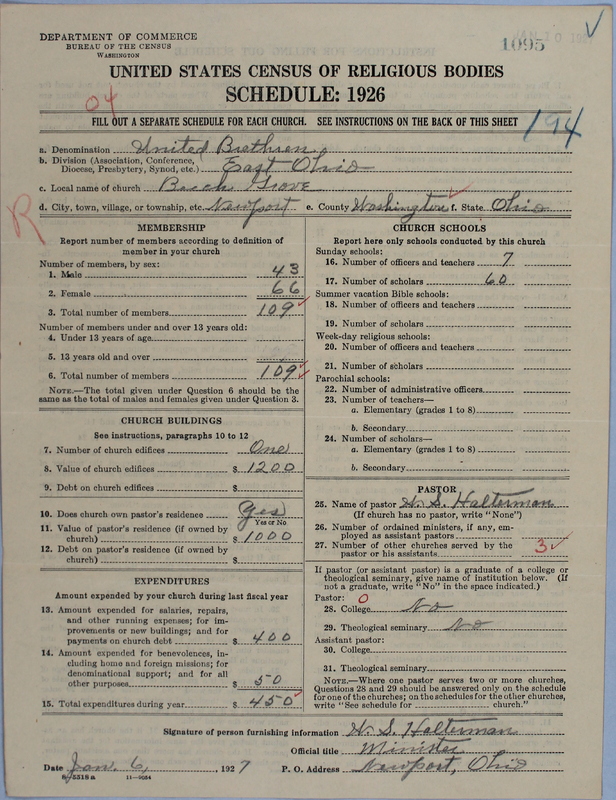 DEPARTMENT OF COMMERCE
BUREAU OF THE CENSUS
WASHINGTON
JAN 10 192
1095
UNITED STATES CENSUS OF RELIGIOUS BODIES
SCHEDULE: 1926
04
FILL OUT A SEPARATE SCHEDULE FOR EACH CHURCH. SEE INSTRUCTIONS ON THE BACK OF THIS SHEET
194
a. Denomination United Brethren
b. Division (Association, Conference,
Diocese, Presbytery, Synod, etc.) East Ohio
c. Local name of church Beech Grove
R
d. City, town, village, or township, etc. Newport e. County Washington f. State Ohio
MEMBERSHIP
Report number of members according to definition of
member in your church
Number of members, by sex:
1. Male 43
2. Female 66
3. Total number of members 109
Number of members under and over 13 years old:
4. Under 13 years of age
5. 13 years old and over
6. Total number of members 109
NOTE.—The total given under Question 6 should be
same as the total of males and females given under Question 3.
CHURCH BUILDINGS
See instructions, paragraphs 10 to 12
7. Number of church edifices One
8. Value of church edifices $ 1200
9. Debt on church edifices $
10. Does church own pastor's residence Yes
Yes or No
11. Value of pastor's residence (if owned by
church) $ 1000
12. Debt on pastor's residence (if owned by
church) $
EXPENDITURES
Amount expended by your church during last fiscal year
13. Amount expended for salaries, repairs,
and other running expenses; for im-
provements or new buildings; and for
payments on church debt $ 400
14. Amount expended for benevolences, in-
cluding home and foreign missions; for
denominational support; and for all
other purposes $ 50
15. Total expenditures during year $ 450
CHURCH SCHOOLS
Report here only schools conducted by this church
Sunday schools:
16. Number of officers and teachers 7
17. Number of scholars 60
Summer vacation Bible schools:
18. Number of officers and teachers
19. Number of scholars
Week-day religious schools:
20. Number of officers and teachers
21. Number of scholars
Parochial schools:
22. Number of administrative officers
23. Number of teachers—
a. Elementary (grades 1 to 8)
b. Secondary
24. Number of scholars—
a. Elementary (grades 1 to 8)
b. Secondary
PASTOR
25. Name of pastor H. S. Halterman
(If church has no pastor, write "None")
26. Number of ordained ministers, if any, em-
ployed as assistant pastors
27. Number of other churches served by the
pastor or his assistants 3
If pastor (or assistant pastor) is a graduate of a college or
theological seminary, give name of institution below. (If
not a graduate, write "No" in the space indicated.)
Pastor: 0
28. College No
29. Theological seminary No
Assistant pastor:
30. College
31. Theological seminary
NOTE.—Where one pastor serves two or more churches,
Questions 28 and 29 should be answered only on the schedule
for one of the churches; on the schedules for the other churches,
write "See schedule for church."
Signature of person furnishing information H. S. Halterman
Official title Minister
Date Jan. 6, 1927 P. O. Address Newport, Ohio
8-5518a 11-9034